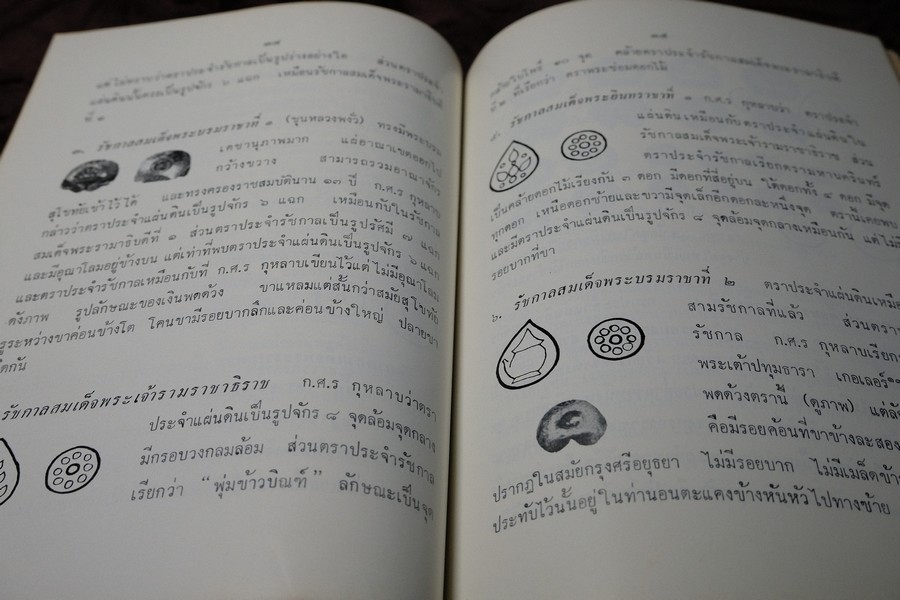 ๓๔
แต่ไม่ทราบว่าตราประจำรัชกาลเป็นรูปร่างอย่างใด ส่วนตราประจำ
แผ่นดินนั้นคงเป็นรูปจักร ๖ แฉก เหมือนรัชกาลสมเด็จพระรามาธิบดี
ที่ ๑
๓. รัชกาลสมเด็จพระบรมราชาที่ ๑ (ขุนหลวงพงั่ว) ทรงมีพระบรม
เดชานุภาพมาก แผ่อาณาเขตออกไป
กว้างขวาง สามารถรวมอาณาจักร
สุโขทัยเข้าไว้ได้ และทรงครองราชสมบัตินาน ๑๓ ปี ก.ศ.ร กุหลาบ
กล่าวว่าตราประจำแผ่นดินเป็นรูปจักร ๖ แฉก เหมือนกับในรัชกาล
สมเด็จพระรามาธิบดีที่ ๑ ส่วนตราประจำรัชกาลเป็นรูปรัศมี ๗ แฉก
และมีอุณาโลมอยู่ข้างบน แต่เท่าที่พบตราประจำแผ่นดินเป็นรูปจักร ๖ แฉก
และตราประจำรัชกาลเหมือนกับที่ ก.ศ.ร กุหลาบเขียนไว้แต่ไม่มีอุณาโลม
ดังภาพ รูปลักษณะของเงินพดด้วง ขาแหลมแต่สั้นกว่าสมัยสุโขทัย
รูระหว่างขาค่อนข้างโต โคนขามีรอยบากลึกและค่อนข้างใหญ่ ปลายขา
ติดกัน
รัชกาลสมเด็จพระเจ้ารามราชาธิราช ก.ศ.ร กุหลาบว่าตรา
ประจำแผ่นดินเป็นรูปจักร ๘ จุดล้อมจุดกลาง
มีกรอบวงกลมล้อม ส่วนตราประจำรัชกาล
เรียกว่า “พุ่มข้าวบิณฑ์” ลักษณะเป็นจุด
๓๕
๑๓ จุด คล้ายตราประจำรัชกาลสมเด็จพระรามาธิบดี
ที่ ๒ ที่เรียกว่า ตราพระซ่อมดอกไม้
๕. รัชกาลสมเด็จพระอินทราชาที่ ๑ ก.ศ.ร กุหลาบว่า ตราประจำ
แผ่นดินเหมือนกับตราประจำแผ่นดินใน
รัชกาลสมเด็จพระเจ้ารามราชาธิราช ส่วน
ตราประจำรัชกาลเรียกตรามหานครินทร์
เป็นคล้ายดอกไม้เรียงกัน ๓ ดอก มีดอกที่สี่อยู่บน ใต้ดอกทั้ง ๔ ดอก มีจุด
ทุกดอก เหนือดอกซ้ายและขวามีจุดเล็กอีกดอกละหนึ่งจุด ตรานี้เคยพบ
และมีตราประจำแผ่นดินเป็นรูปจักร ๘ จุดล้อมจุดกลางเหมือนกัน แต่ไม่มี
รอยบากที่ขา
๖. รัชกาลสมเด็จพระบรมราชาที่ ๒ ตราประจำแผ่นดินเหมือน
สามรัชกาลที่แล้ว ส่วนตรา
รัชกาล ก.ศ.ร กุหลาบเรียก
พระเต้าปทุมธารา เกอเลอร์
พดด้วงตรานี้ (ดูภาพ) แต่ลั
คือมีรอยค้อนที่ขาข้างละสอง
ปรากฏในสมัยกรุงศรีอยุธยา ไม่มีรอยบาก ไม่มีเมล็ดข้า
ประทับไว้นั้นอยู่ในท่านอนตะแคงข้างหันหัวไปทางซ้าย